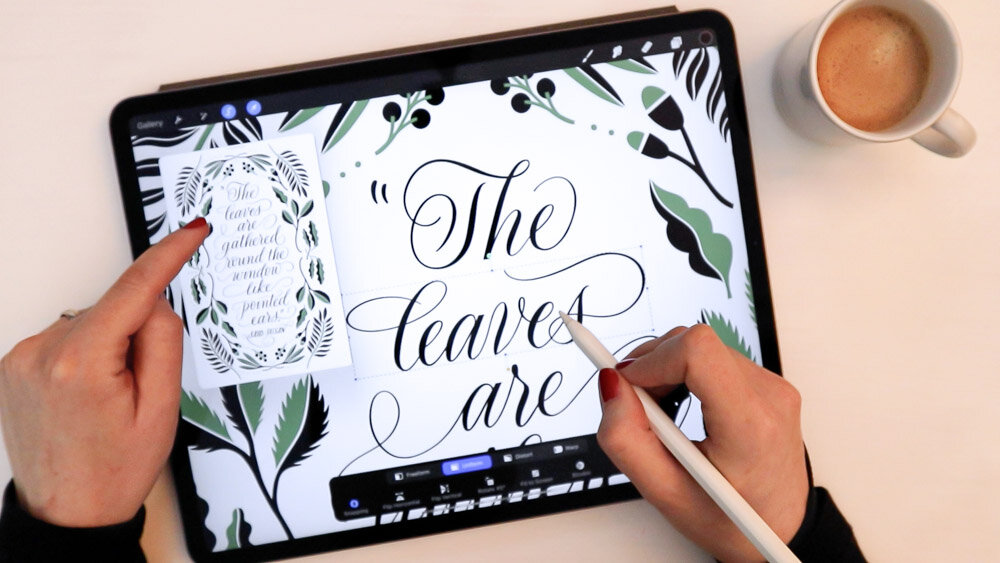 Gallery
"The
leaves
are
"The
leaves
are
gathered
round the
window
like
pointed
ears.
Freeform
Uniform
Distort
Warp
Snapping
Flip Horizontal
Flip Vertical
Rotate 45°
Fit to Screen
Bilinear